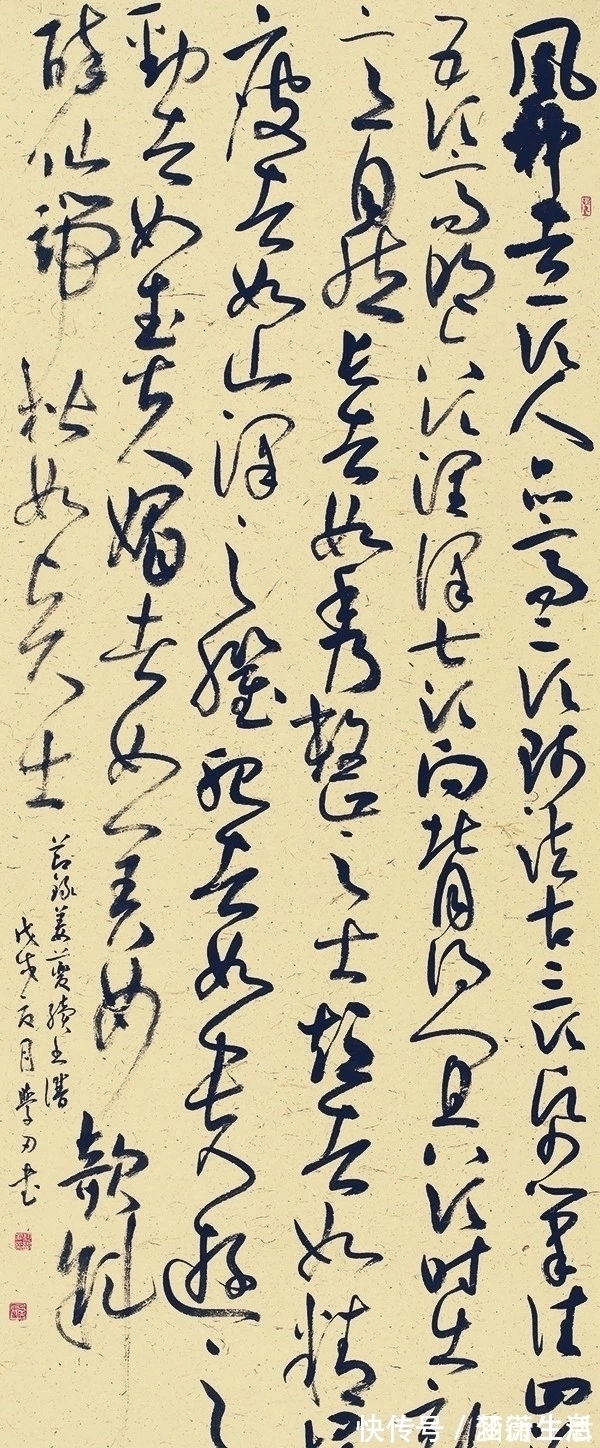 風神者一須人品高二須師法古三須紙筆佳四
五須高明六須潤澤七須向背得宜八須時出新
意自然長者如秀整之士短者如精悍
瘦者如山澤之癯肥者如貴遊之
勁者如武夫媚者如美女欹斜
醉仙端楷如賢士
節錄姜夔續書譜
戊戌月學書
快传号 / 潇生活